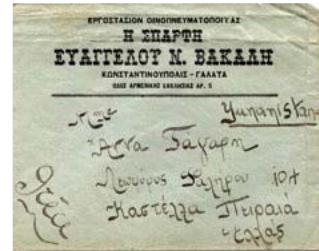 ΕΡΓΟΣΤΑΣΙΟΝ ΟΙΝΟΠΝΕΥΜΑΤΟΠΟΙΪΑΣ
Η ΣΠΑΡΤΗ
ΕΥΑΓΓΕΛΟΥ Ν. ΒΑΚΑΛΗ
ΚΩΝΣΤΑΝΤΙΝΟΥΠΟΛΙΣ - ΓΑΛΑΤΑ
ΟΔΟΣ ΑΡΜΕΝΙΚΗΣ ΕΚΚΛΗΣΙΑΣ ΑΡ. 5
Mme Yunanistan
Άννα
Φαλήρου 104
Καστέλλα Πειραιά
Ελλάς